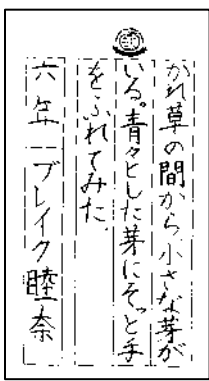 かれ草の間から小さな芽が
いる。青々とした芽にそっと手
をふれてみた。
六年 ブレイク睦奈